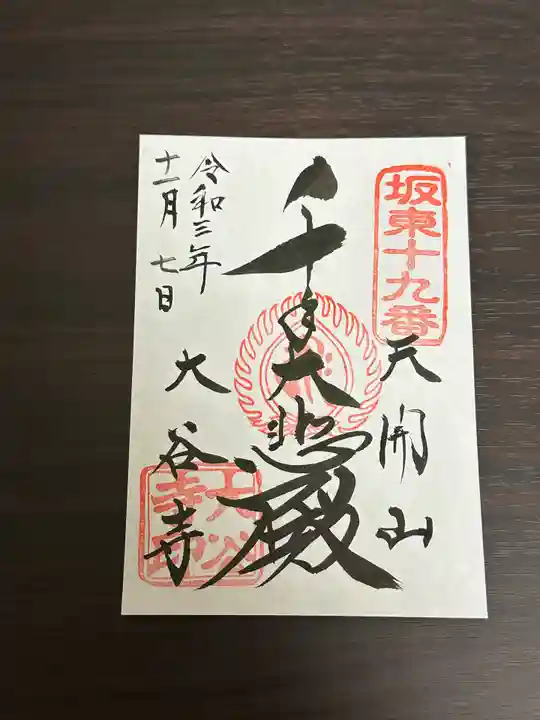 坂東十九番
天開山
千手大悲殿
大谷寺
令和三年
十一月七日